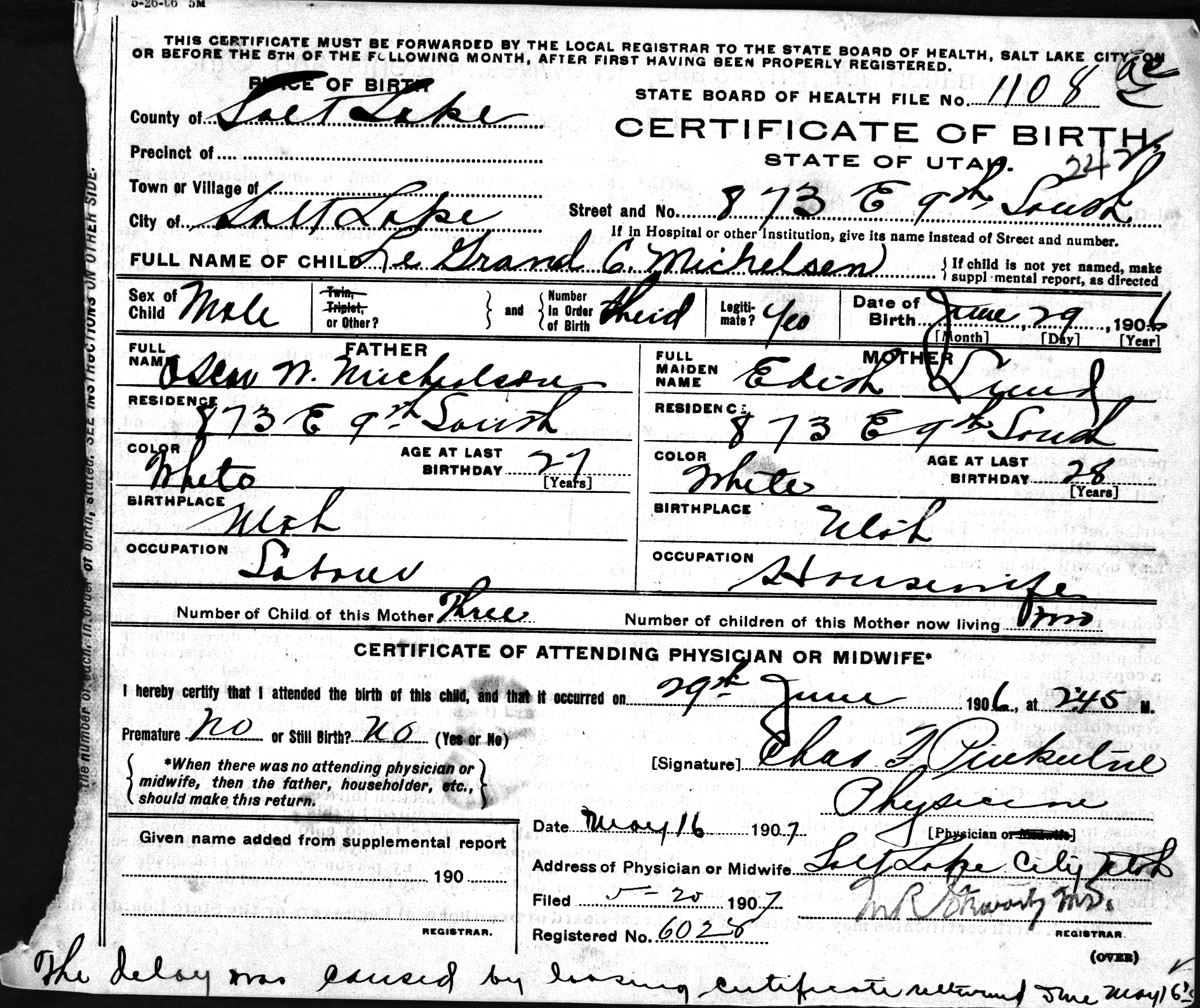 5-26-06 5M
THIS CERTIFICATE MUST BE FORWARDED BY THE LOCAL REGISTRAR TO THE STATE BOARD OF HEALTH, SALT LAKE CITY, ON
OR BEFORE THE 5TH OF THE FOLLOWING MONTH, AFTER FIRST HAVING BEEN PROPERLY REGISTERED.
PLACE OF BIRTH
STATE BOARD OF HEALTH FILE No. 1108
County of Salt Lake
CERTIFICATE OF BIRTH
STATE OF UTAH.
Precinct of
Town or Village of
Street and No. 873 E 9th South
City of Salt Lake
If in Hospital or other Institution, give its name instead of Street and number.
FULL NAME OF CHILD Le Grand C. Michelsen
{ If child is not yet named, make
suppl mental report, as directed
Sex of Child Male
Twin, Triplet, or Other?
} and { Number In Order of Birth third
Legiti- mate? Yes
Date of Birth June 29, 1906
[Month] [Day] [Year]
FATHER
FULL NAME Oscar W. Michelson
RESIDENCE 873 E 9th South
COLOR White
AGE AT LAST BIRTHDAY 27
[Years]
BIRTHPLACE Utah
OCCUPATION Labour
MOTHER
FULL MAIDEN NAME Edith
RESIDENCE 873 E 9th South
COLOR White
AGE AT LAST BIRTHDAY 28
[Years]
BIRTHPLACE Utah
OCCUPATION Housewife
Number of Child of this Mother Three
Number of children of this Mother now living Two
CERTIFICATE OF ATTENDING PHYSICIAN OR MIDWIFE*
I hereby certify that I attended the birth of this child, and that it occurred on 29th June 1906, at 245 M.
Premature No or Still Birth? No (Yes or No)
*When there was no attending physician or
midwife, then the father, householder, etc.,
should make this return.
[Signature] Chas F.
Physician
[Physician or Midwife]
Given name added from supplemental report
190
REGISTRAR.
Date May 16 1907
Address of Physician or Midwife Salt Lake City Utah
Filed 5-20 1907
Registered No. 6028
REGISTRAR.
(OVER)
The delay was caused by loosing certificate returned me May 16
SEE INSTRUCTIONS ON OTHER SIDE.